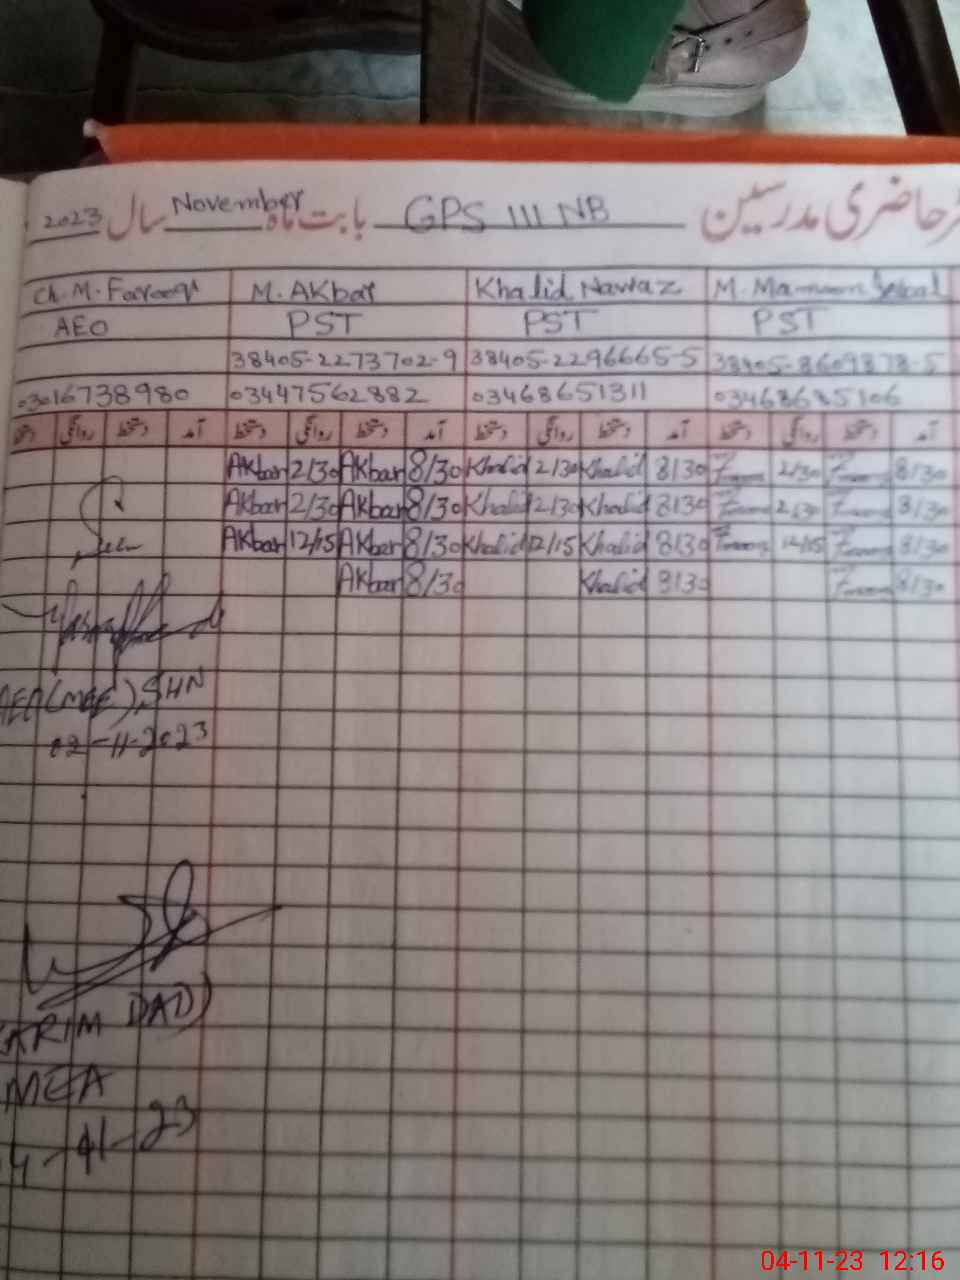 رحاضری مدرسین GPS III NB بابت ماہ November سال 2023
Ch. M. Farooq M. Akbar Khalid Nawaz M.
AEO PST PST PST
38405-2273702-9 38405-2296665-5 38405-8609878-5
03016738980 03447562882 03468651311 03468685106
دستخط روانگی دستخط آمد دستخط روانگی دستخط آمد دستخط روانگی دستخط آمد دستخط روانگی دستخط آمد
Akbar 2/30 Akbar 8/30 Khalid 2/30 Khalid 8/30 2/30 8/30
Akbar 2/30 Akbar 8/30 Khalid 2/30 Khalid 8/30 2/30 8/30
Akbar 12/15 Akbar 8/30 Khalid 12/15 Khalid 8/30 12/15 8/30
Akbar 8/30 Khalid 8/30 8/30
Seen
AEO(MEE) SHN
02-11-2023
KARIM DAD)
MEA
4-11-23
04-11-23 12:16